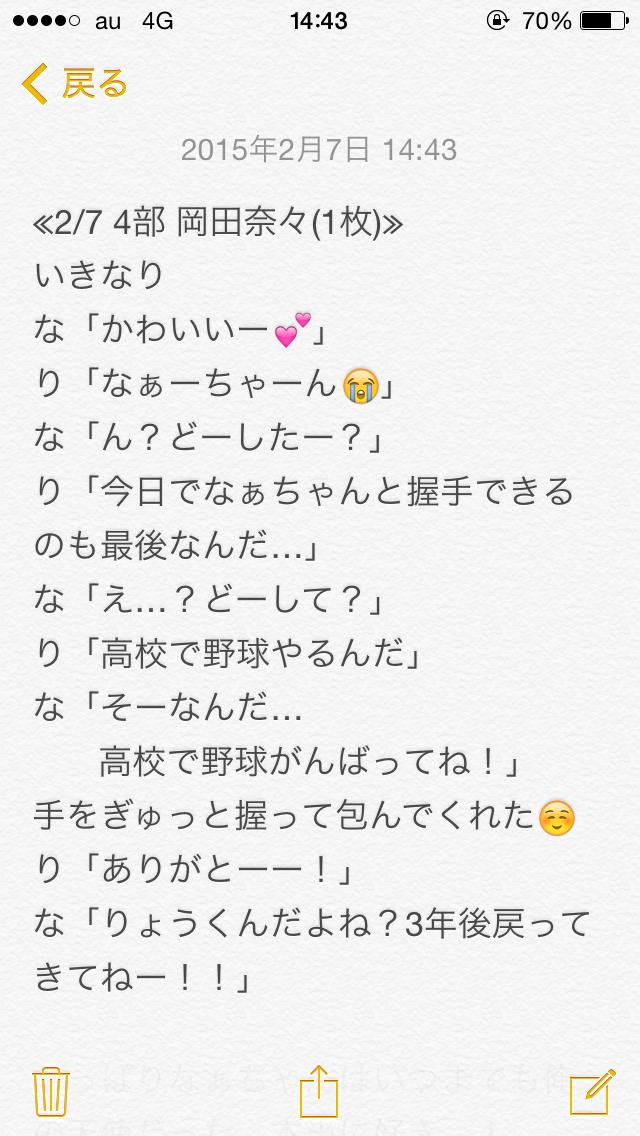 au 4G 14:43 70%
戻る
2015年2月7日 14:43
≪2/7 4部 岡田奈々(1枚)≫
いきなり
な「かわいいー💕」
り「なぁーちゃーん😭」
な「ん？どーしたー？」
り「今日でなぁちゃんと握手できる
のも最後なんだ…」
な「え…？どーして？」
り「高校で野球やるんだ」
な「そーなんだ…
高校で野球がんばってね！」
手をぎゅっと握って包んでくれた☺️
り「ありがとーー！」
な「りょうくんだよね？3年後戻って
きてねー！！」